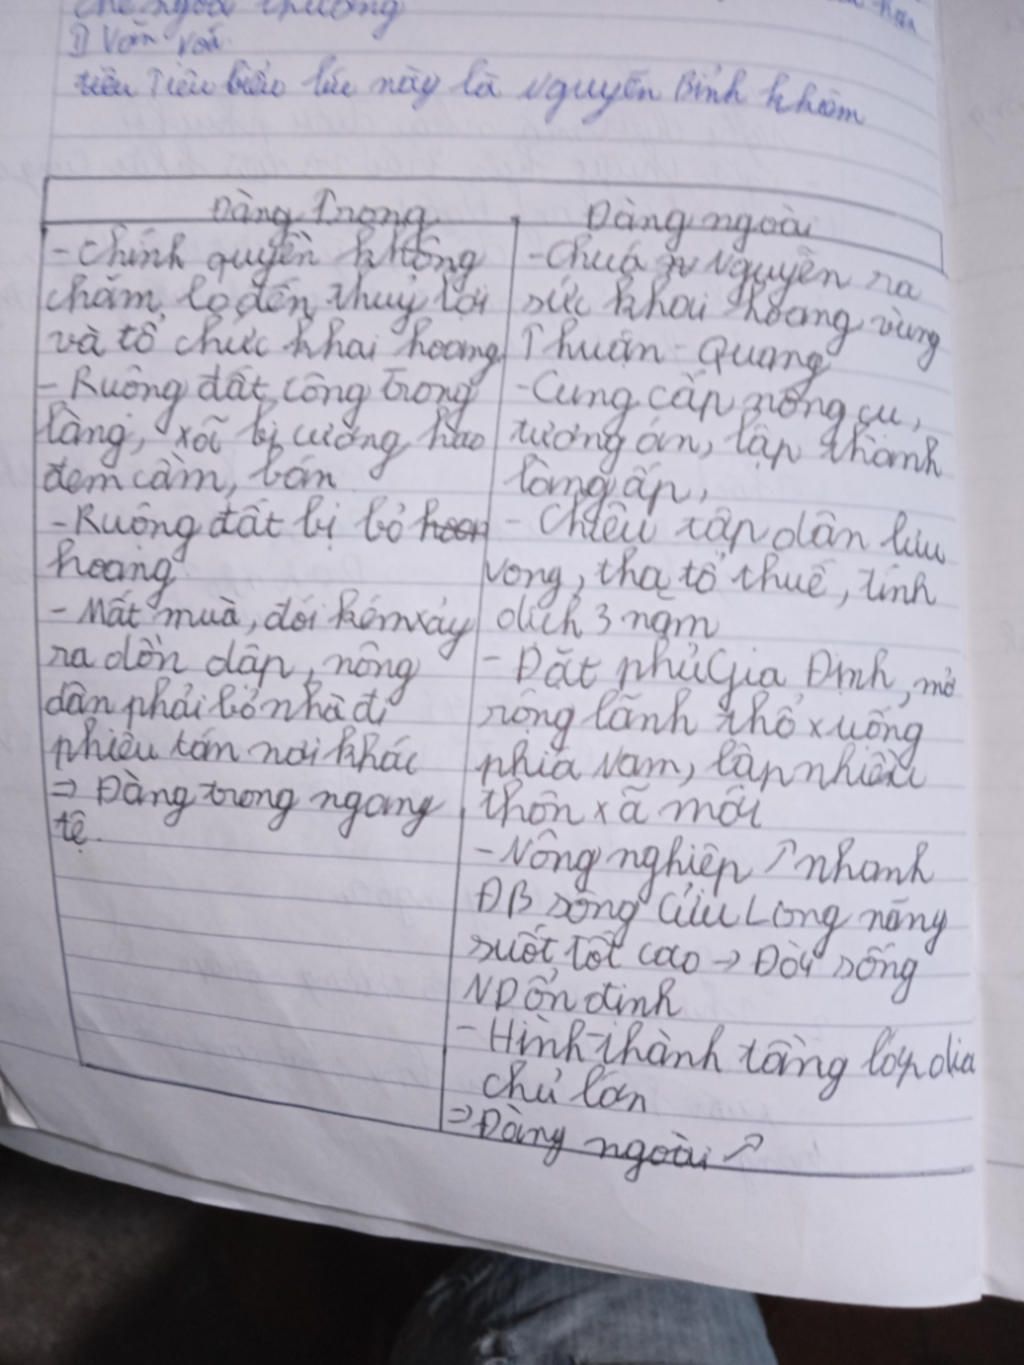 chế ngoại thương
1) Văn hoá
tiêu Tiêu biểu lúc này là Nguyễn Bỉnh Khiêm
Đàng Trong
- Chính quyền không
chăm, lo đến thuỷ lợi
và tổ chức khai hoang
- Ruộng đất công trong
làng, xã bị cường hào
đem cầm, bán
- Ruộng đất bị bỏ hoan
hoang
- Mất mùa, đói kém xảy
ra dồn dập, nông
dân phải bỏ nhà đi
phiêu tán nơi khác
⇒ Đàng trong ngang
tệ.
Đàng ngoài
- Chúa Nguyễn ra
sức khai hoang vùng
Thuận - Quảng
- Cung cấp nông cụ,
lương ăn, lập thành
làng ấp,
- Chiêu tập dân lưu
vong, tha tô thuế, binh
dịch 3 năm
- Đặt phủ Gia Định, mở
rộng lãnh thổ xuống
phía Nam, lập nhiều
thôn xã mới
- Nông nghiệp ↗ nhanh
ĐB sông Cửu Long năng
suất tốt cao → Đời sống
ND ổn định
- Hình thành tầng lớp địa
chủ lớn
⇒ Đàng ngoài ↗